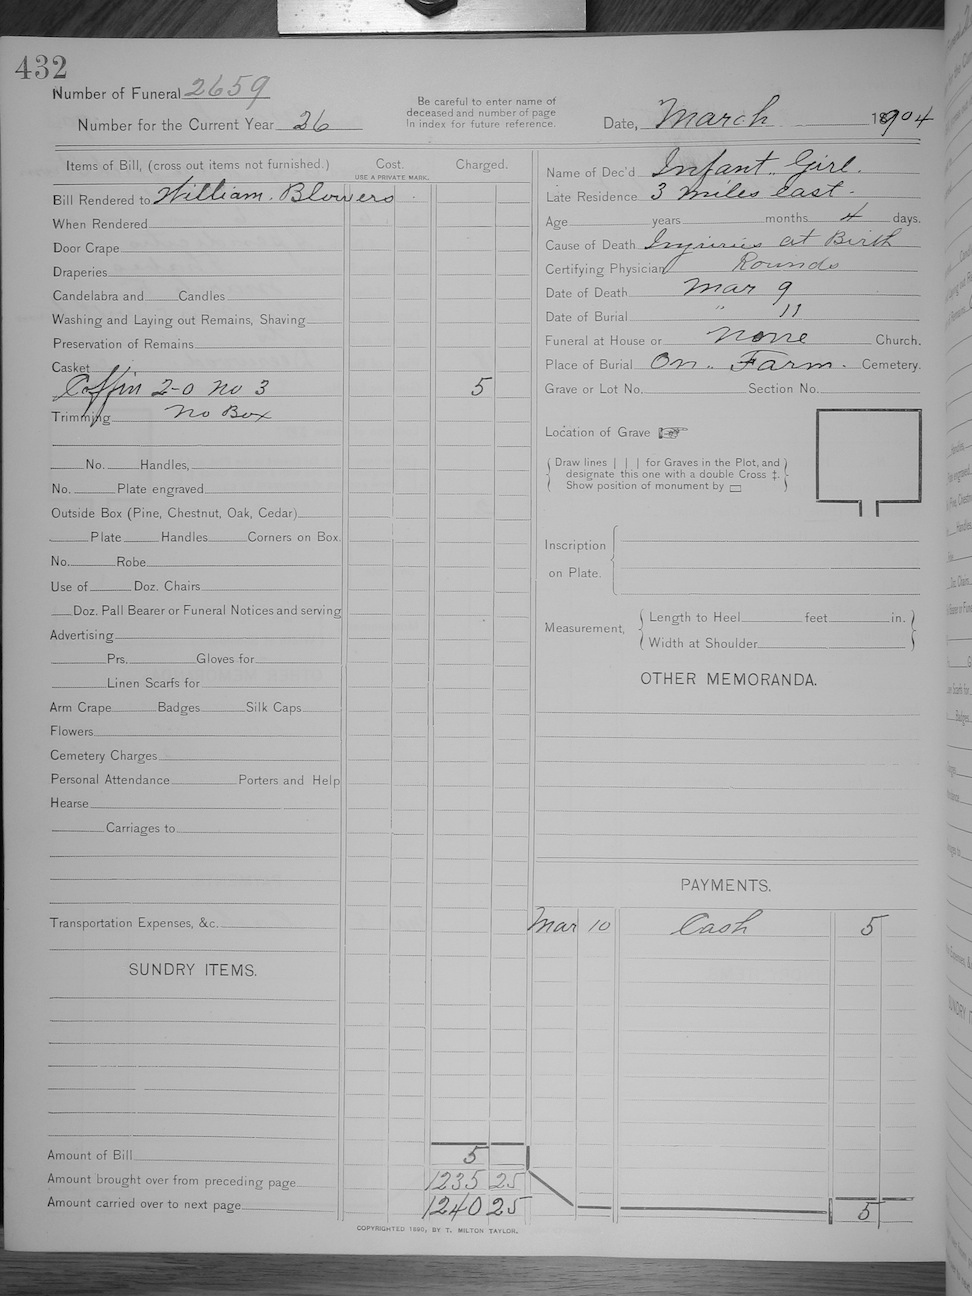 432
Number of Funeral 2659
Number for the Current Year 26
Be careful to enter name of
deceased and number of page
in index for future reference.
Date, March 1904
Items of Bill, (cross out items not furnished.) Cost. Charged.
USE A PRIVATE MARK.
Bill Rendered to William. Blowers
When Rendered
Door Crape
Draperies
Candelabra and Candles
Washing and Laying out Remains, Shaving
Preservation of Remains
Casket
Coffin 2-0 no 3 5
Trimming no Box
No. Handles,
No. Plate engraved
Outside Box (Pine, Chestnut, Oak, Cedar)
Plate Handles Corners on Box
No. Robe
Use of Doz. Chairs
Doz. Pall Bearer or Funeral Notices and serving
Advertising
Prs. Gloves for
Linen Scarfs for
Arm Crape Badges Silk Caps
Flowers
Cemetery Charges
Personal Attendance Porters and Help
Hearse
Carriages to
Transportation Expenses, &c.
SUNDRY ITEMS.
Amount of Bill 5
Amount brought over from preceding page 1235 25
Amount carried over to next page 1240 25
Name of Dec'd Infant Girl.
Late Residence 3 miles East
Age years months 4 days.
Cause of Death Injuries at Birth
Certifying Physician Rounds
Date of Death Mar 9
Date of Burial " 11
Funeral at House or none Church.
Place of Burial On Farm Cemetery.
Grave or Lot No. Section No.
Location of Grave
Draw lines | | | for Graves in the Plot, and
designate this one with a double Cross ‡.
Show position of monument by
Inscription
on Plate.
Measurement, Length to Heel feet in.
Width at Shoulder
OTHER MEMORANDA.
PAYMENTS.
Mar 10 Cash 5
5
COPYRIGHTED 1890, BY T. MILTON TAYLOR.